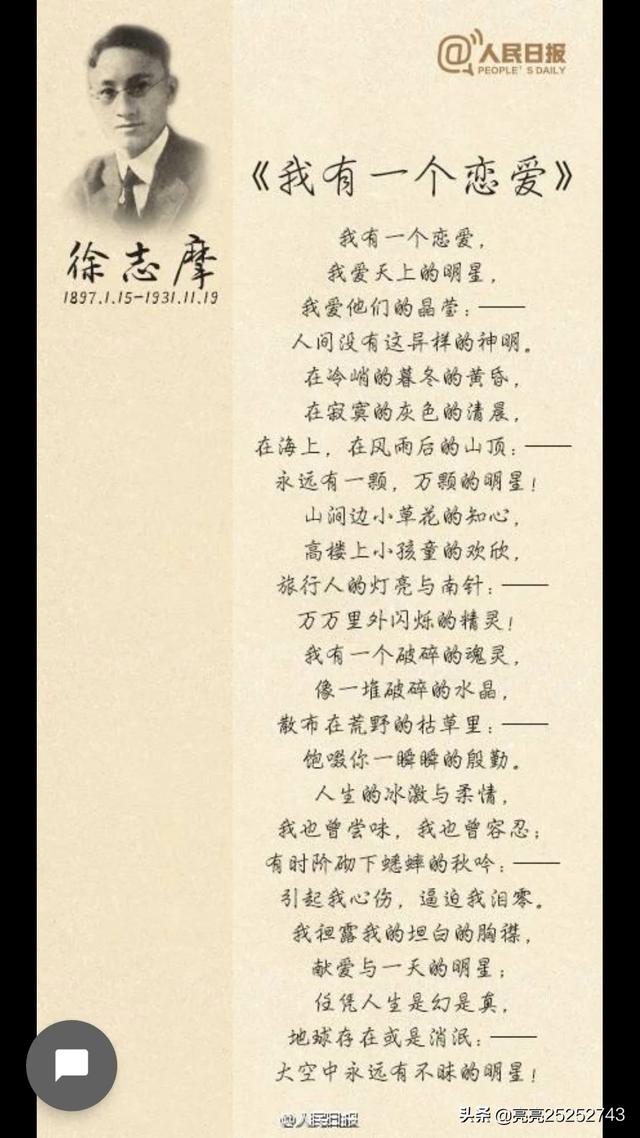 @人民日报
PEOPLE'S DAILY
《我有一个恋爱》
徐志摩
1897.1.15-1931.11.19
我有一个恋爱,
我爱天上的明星,
我爱他们的晶莹:——
人间没有这异样的神明。
在冷峭的暮冬的黄昏,
在寂寞的灰色的清晨,
在海上,在风雨后的山顶:——
永远有一颗,万颗的明星!
山涧边小草花的知心,
高楼上小孩童的欢欣,
旅行人的灯亮与南针:——
万万里外闪烁的精灵!
我有一个破碎的魂灵,
像一堆破碎的水晶,
散布在荒野的枯草里:——
饱啜你一瞬瞬的殷勤。
人生的冰激与柔情,
我也曾尝味,我也曾容忍;
有时阶砌下蟋蟀的秋吟:——
引起我心伤,逼迫我泪零。
我袒露我的坦白的胸襟,
献爱与一天的明星;
任凭人生是幻是真,
地球存在或是消泯:——
大空中永远有不昧的明星!
@人民日报
头条 @亮亮25252743